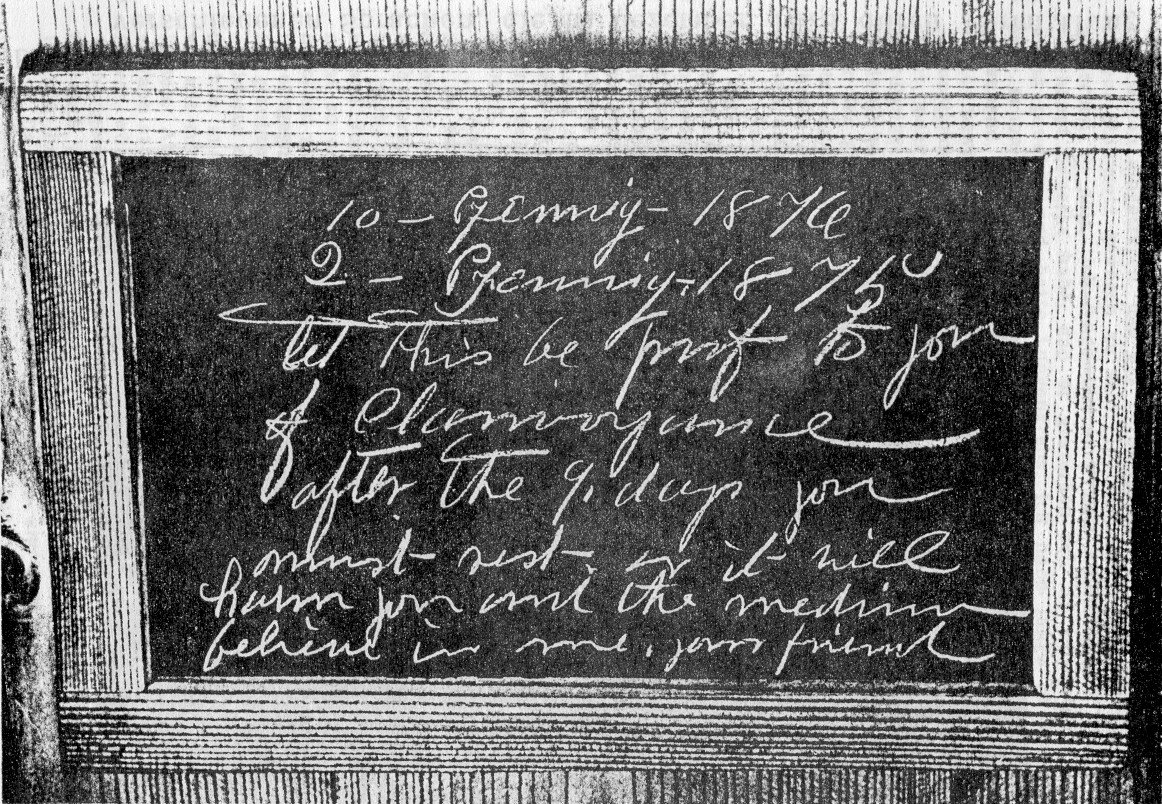 10 – Pfennig – 1876
2 – Pfennig. 1875
let this be proof to you
of Clairvoyance
after the 9. days you
must rest. or it will
harm you and the medium
believe in me. your friend